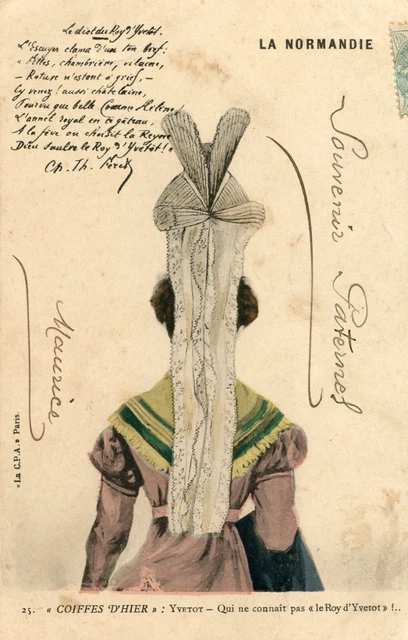 Le dict du Roy d'Yvetot.
L'Escuyer clama d'un ton bref:
"Filles, chambrière, vilaine,
- Roture n'estant à grief, -
Cy venez! aussi châtelaine,
Pourvu que belle comme Hélène,
L'annel royal en ce gâteau,
A la fève ou choisit la Reyne
Dieu saulve le Roy d'Yvetot!"
Ch. Th. Féret
LA NORMANDIE
Souvenir Paternel
Maurice
"La C.P.A." Paris.
25. « COIFFES D'HIER » : YVETOT — Qui ne connait pas « le Roy d'Yvetot » !..